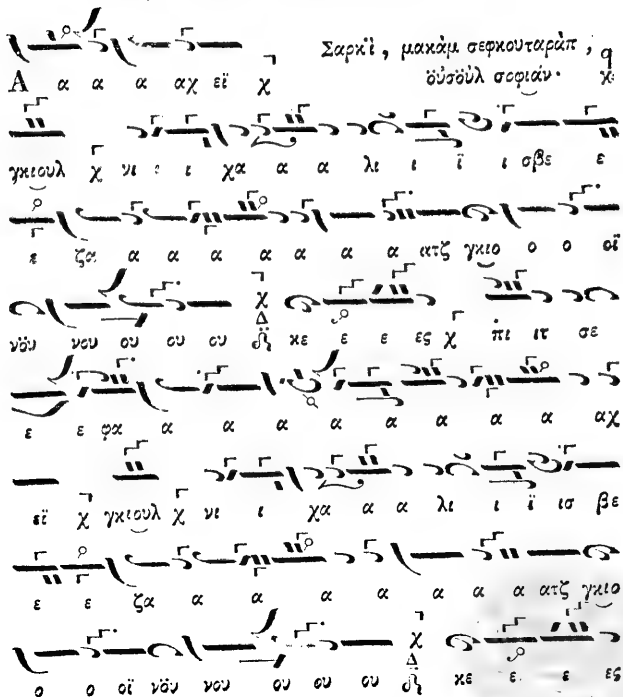 Σαρκὶ, μακὰμ σεφκουταρὰπ,
ὀυσὸυλ σοφιάν.
Α α α α αχ εϊ χ
γκιουλ χ νι ι ι χα α α λι ι ϊ ι σβε ε
ε ζα α α α α α α α ατζ γκιο ο ο οϊ
νȣ̈ν νου ου ου ου κε ε ε ες χ πι ιτ σε
ε ε φα α α α α α α α α αχ
εϊ χ γκιουλ χ νι ι χα α α λι ι ϊ ισ βε
ε ε ζα α α α α α α α ατζ γκιο
ο ο οϊ νȣ̈ν νου ου ου ου κε ε ε ες